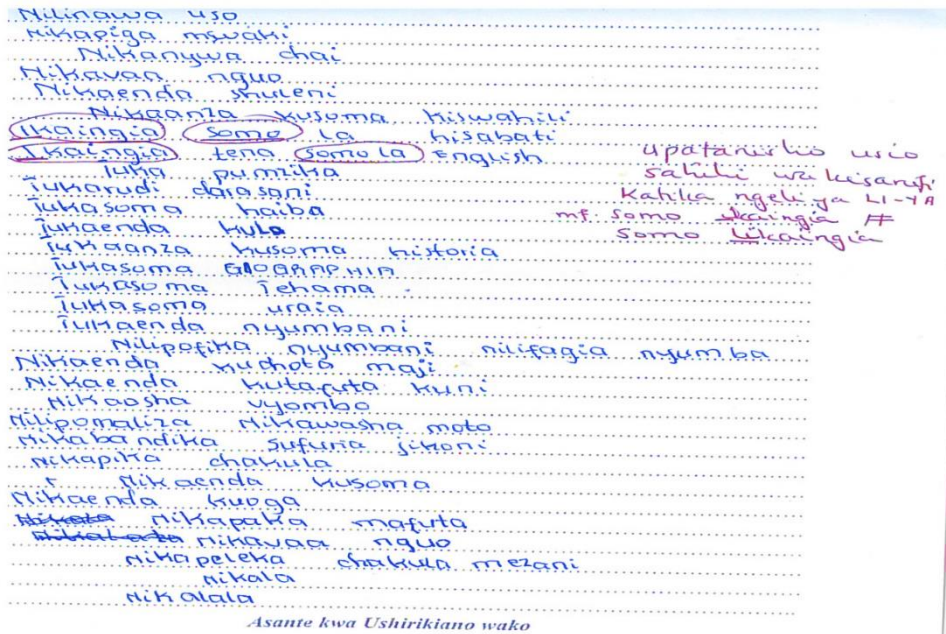 Nilinawa uso
Nikapiga mswaki
Nikanywa chai
Nikavaa nguo
Nikaenda shuleni
Nikaanza kusoma kiswahili
Ikaingia somo la hisabati
Ikaingia tena somo la English
Tuka pumzika
Tukarudi darasani
Tukasoma haiba
Tukaenda kula
Tukaanza kusoma historia
Tukasoma GEOGRAPHIA
Tukasoma Tehama
Tukasoma uraia
Tukaenda nyumbani
Nilipofika nyumbani nilifagia nyumba
Nikaenda kuchota maji
Nikaenda kutafuta kuni
Nikaosha vyombo
Nilipomaliza Nikawasha moto
Nikabandika sufuria jikoni
Nikapika chakula
Nikaenda kusoma
Nikaenda kuoga
Nikapaka mafuta
Nikavaa nguo
Nikapeleka chakula mezani
Nikala
Nikalala
upatanisho usio
sahihi wa kisarufi
katika ngeli ya LI-YA
mf. somo ikaingia #
somo likaingia
Asante kwa Ushirikiano wako